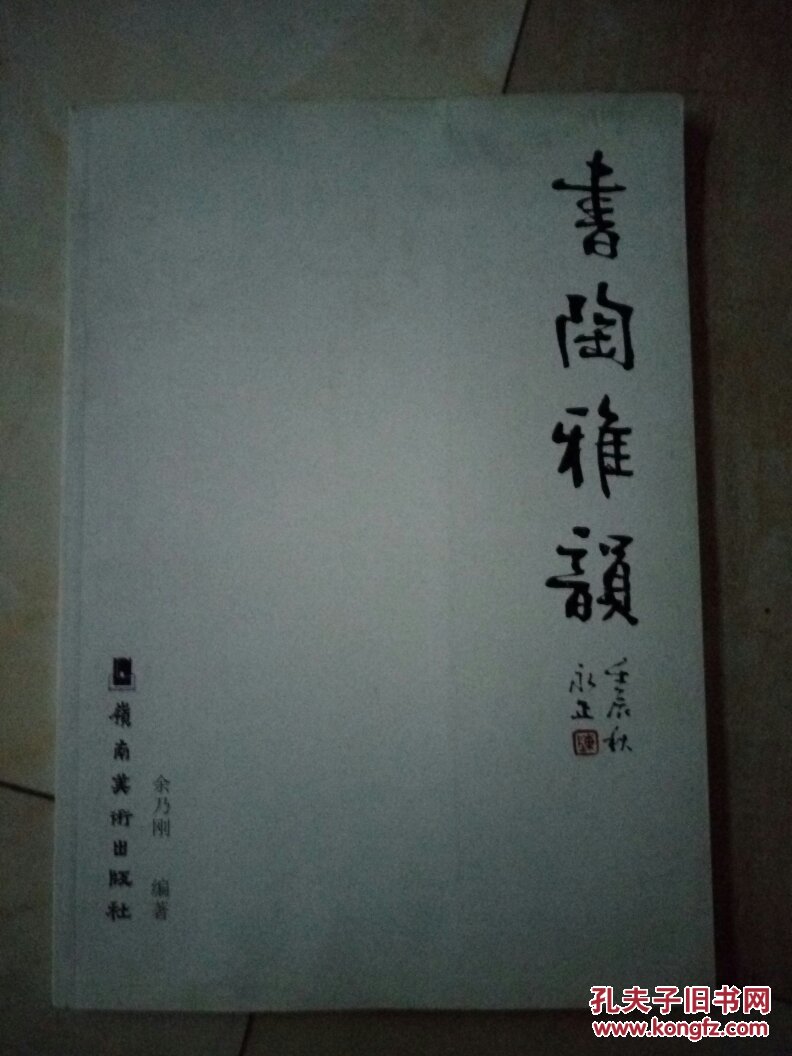 書陶雅韻
壬辰秋
永正
陳
余乃刚 编著
嶺南美術出版社
孔夫子旧书网
www.kongfz.com